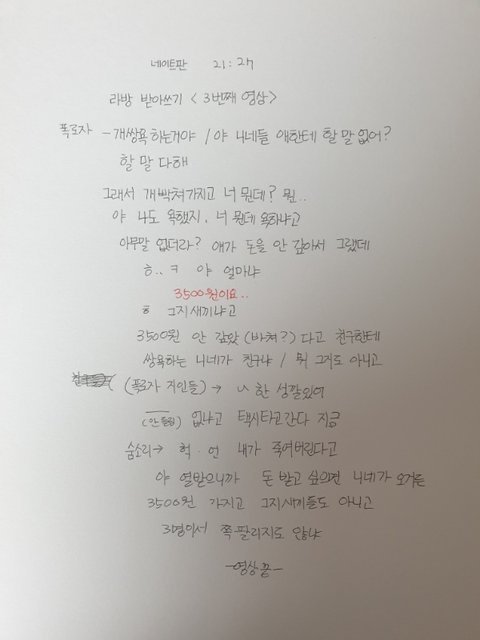 네이트판 21:27
라방 받아쓰기 <3번째 영상>
폭로자 - 개쌍욕 하는거야 / 야 니네들 얘한테 할 말 없어?
할 말 다해
그래서 개빡쳐가지고 너 뭔데? 뭔..
야 나도 욕했지, 너 뭔데 욕하냐고
아무말 없더라? 얘가 돈을 안 갚아서 그랬데
ㅎ.. ㅋ 야 얼마냐
3500원이요..
ㅎ 그지새끼냐고
3500원 안 갚았(바쳐?)다고 친구한테
쌍욕하는 니네가 친구냐 / 뭐 그지도 아니고
(폭로자 지인들) → 나 한 성깔있어
(안들림) 없냐고 택시타고간다 지금
숨소리 → 헉. 언 내가 죽여버린다고
야 열받으니까 돈 받고 싶으면 니네가 오거든
3500원 가지고 그지새끼들도 아니고
3명이서 쪽팔리지도 않냐
-영상 끝-